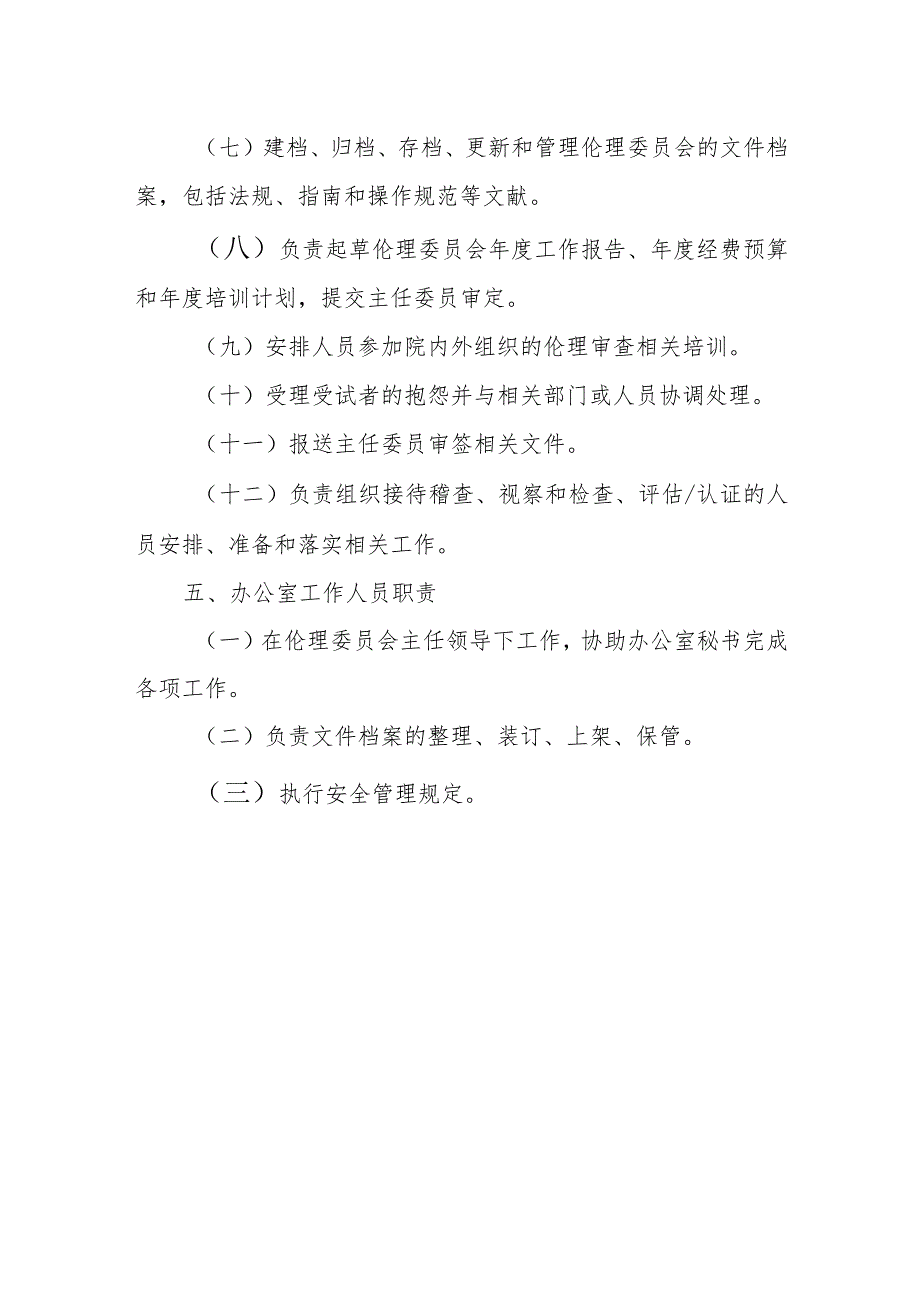 （七）建档、归档、存档、更新和管理伦理委员会的文件档
案，包括法规、指南和操作规范等文献。
（八）负责起草伦理委员会年度工作报告、年度经费预算
和年度培训计划，提交主任委员审定。
（九）安排人员参加院内外组织的伦理审查相关培训。
（十）受理受试者的抱怨并与相关部门或人员协调处理。
（十一）报送主任委员审签相关文件。
（十二）负责组织接待稽查、视察和检查、评估/认证的人
员安排、准备和落实相关工作。
五、办公室工作人员职责
（一）在伦理委员会主任领导下工作，协助办公室秘书完成
各项工作。
（二）负责文件档案的整理、装订、上架、保管。
（三）执行安全管理规定。